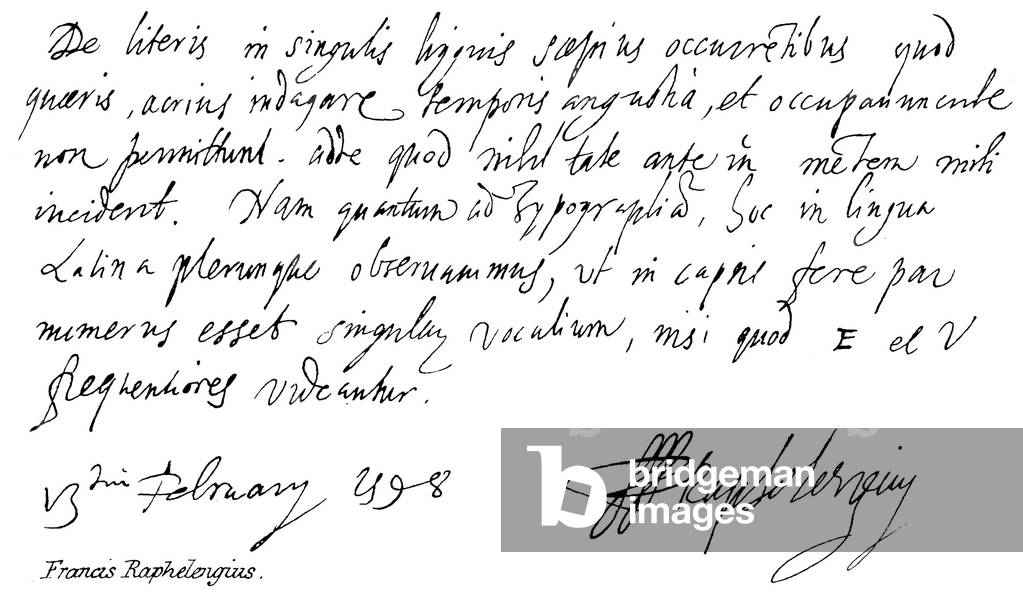 De literis in singulis linguis sæpius occurrētibus quod
quæris, acrius indagare temporis angustia, et occupatiunculæ
non permittunt. adde quod nihil tale ante in mētem mihi
inciderit. Nam quantum ad Typographiā, hoc in lingua
Latina plerunque observavimus, ut in capsis fere par
numerus esset singulaȝ vocalium, nisi quod E et V
frequentiores videantur.
Februarij 1598
Raphelengius
Francis Raphelengius.
bridgeman
images